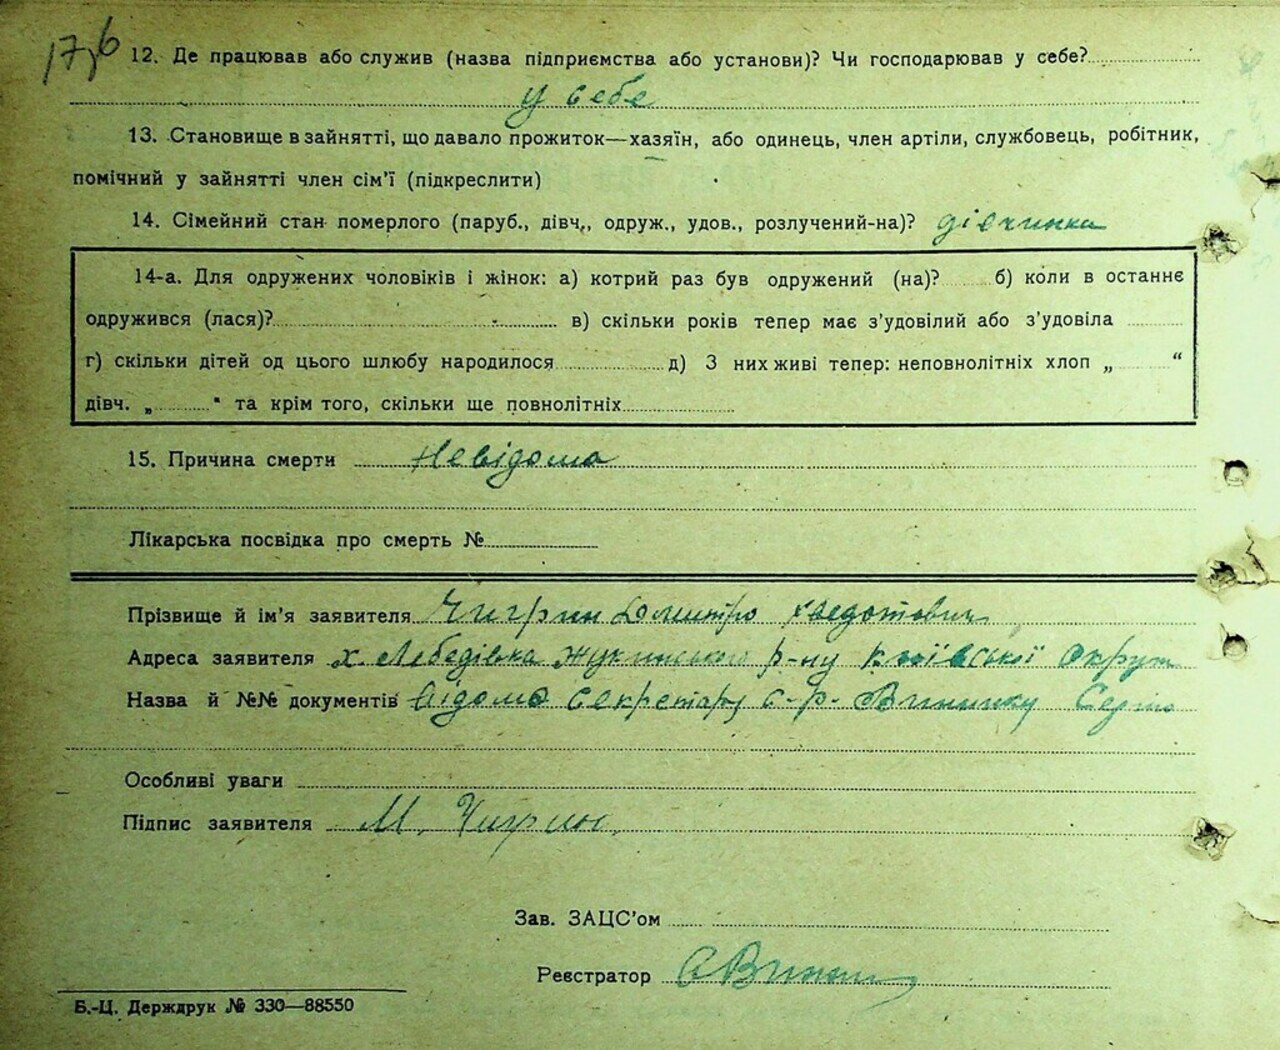 17об
12. Де працював або служив (назва підприємства або установи)? Чи господарював у себе?
у себе
13. Становище в зайнятті, що давало прожиток—хазяїн, або одинець, член артіли, службовець, робітник,
помічний у зайнятті член сім’ї (підкреслити)
14. Сімейний стан померлого (паруб., дівч., одруж., удов., розлучений-на)? дівчинка
14-а. Для одружених чоловіків і жінок: а) котрий раз був одружений (на)? б) коли в останнє
одружився (лася)? в) скільки років тепер має з’удовілий або з’удовіла
г) скільки дітей од цього шлюбу народилося д) З них живі тепер: неповнолітніх хлоп „ “
дівч. „ “ та крім того, скільки ще повнолітніх
15. Причина смерти Невідома
Лікарська посвідка про смерть №
Прізвище й ім’я заявителя Чигрин Дмитро Хведотович
Адреса заявителя х. Лебедівка Жукинського р-ну Київської Округи
Назва й №№ документів Відомо Секретару С-р- Виннику Сергію
Особливі уваги
Підпис заявителя М. Чигрин.
Зав. ЗАЦС’ом
Реєстратор
Б.-Ц. Держдрук № 330—88550